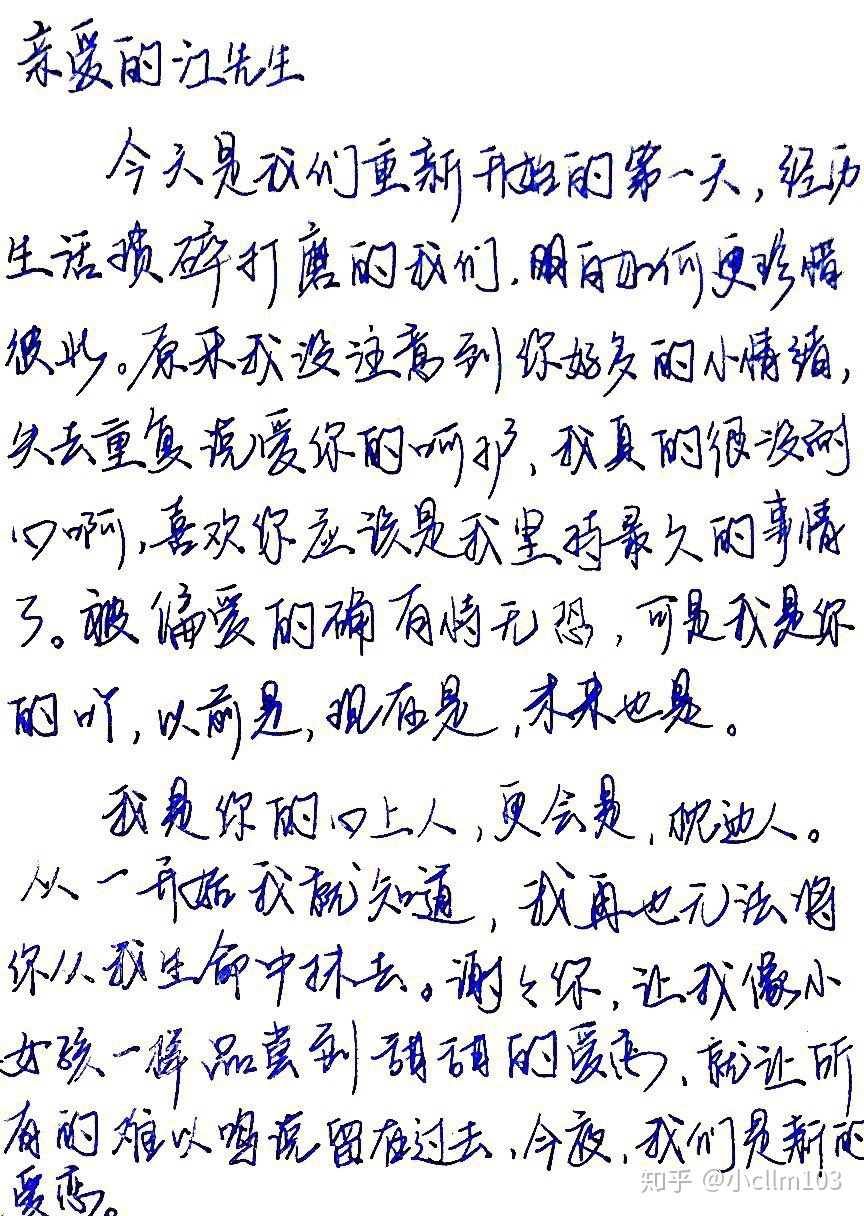 亲爱的江先生
今天是我们重新开始的第一天,经历
生活琐碎打磨的我们,明白如何更珍惜
彼此。原来我没注意到你好多的小情绪,
失去重复说爱你的呵护,我真的很没耐
心啊,喜欢你应该是我坚持最久的事情
了。被偏爱的确有恃无恐,可是我是你
的吖,以前是,现在是,未来也是。
我是你的心上人,更会是,枕边人。
从一开始我就知道,我再也无法将
你从我生命中抹去。谢々你,让我像小
女孩一样品尝到甜甜的爱恋,就让所
有的难以鸣说留在过去,今夜,我们是新的
爱恋。
知乎 @小cllm103